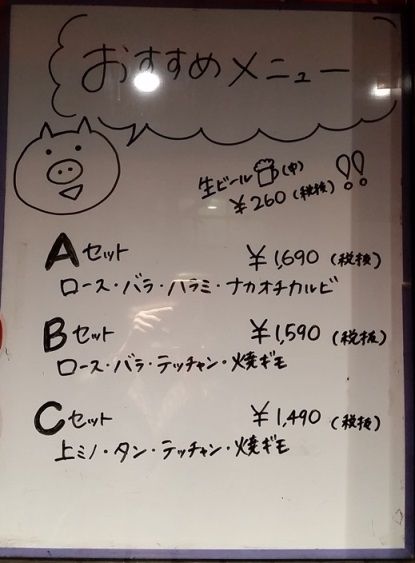 おすすめメニュー
生ビール(中)!!
¥260(税抜)
Aセット ¥1,690(税抜)
ロース・バラ・ハラミ・ナカオチカルビ
Bセット ¥1,590(税抜)
ロース・バラ・テッチャン・焼ギモ
Cセット ¥1,490(税抜)
上ミノ・タン・テッチャン・焼ギモ